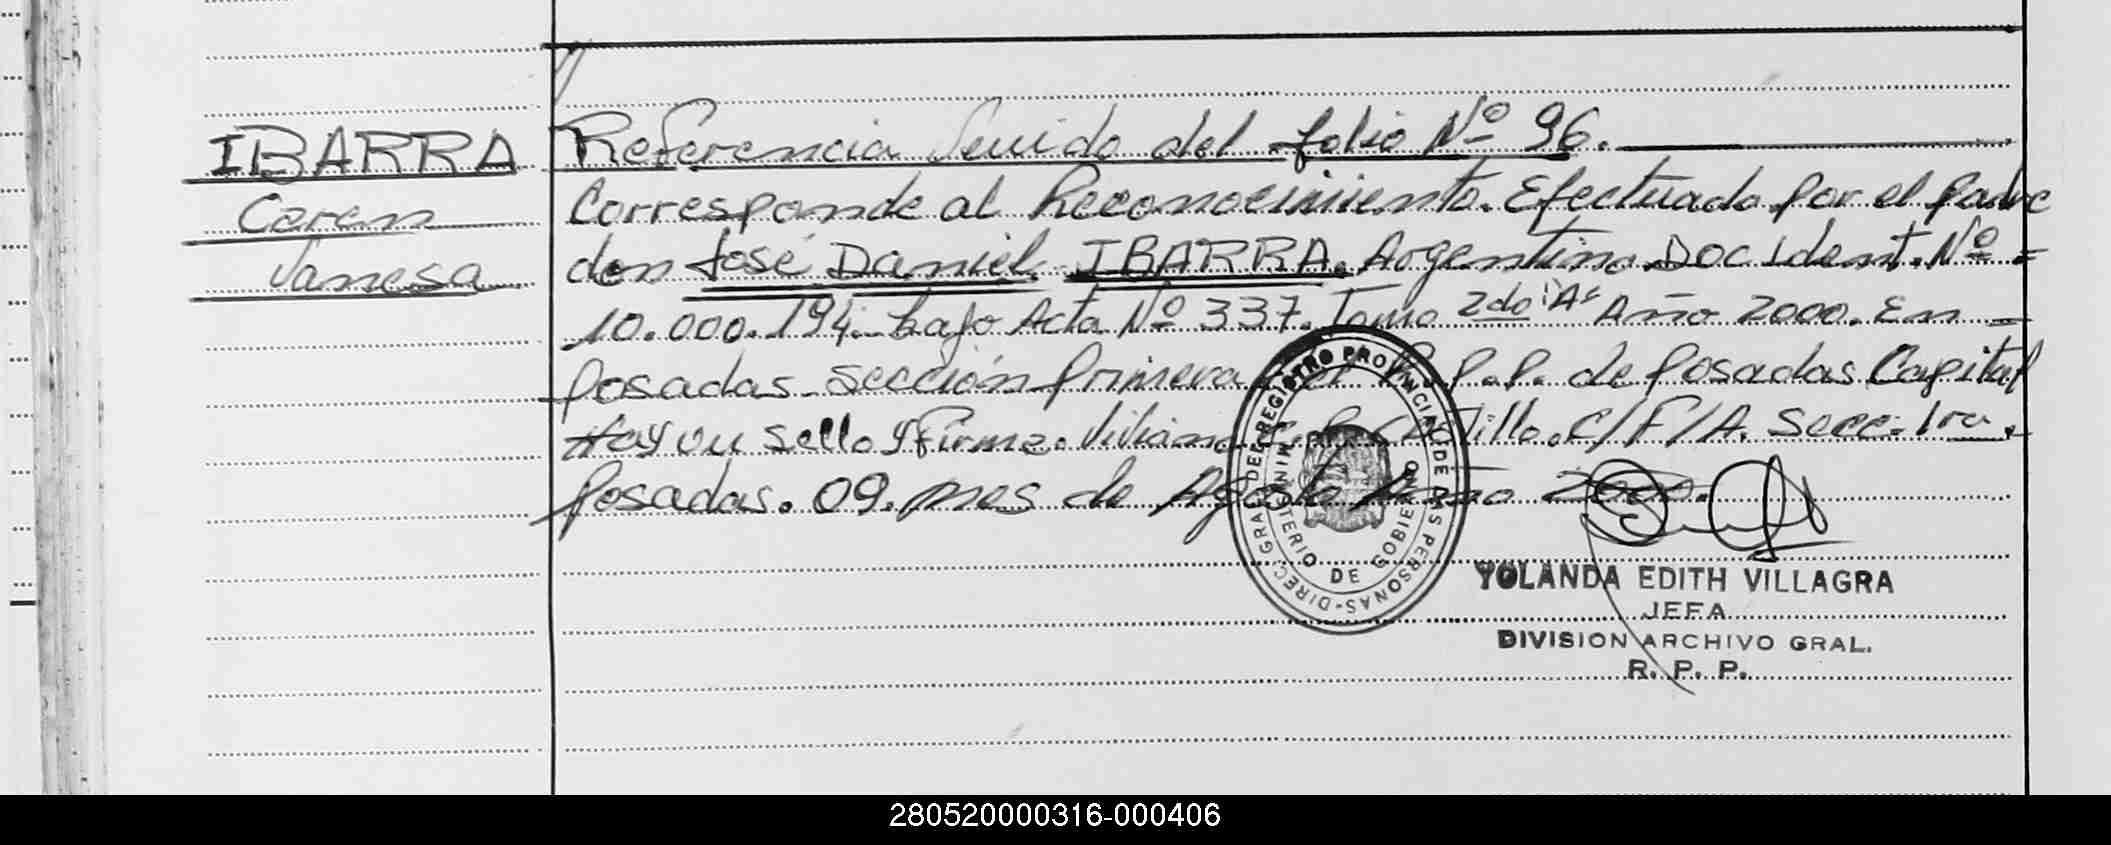 IBARRA
Caren
Vanesa
Referencia Venido del folio Nº 96.
Corresponde al Reconocimiento. Efectuado por el padre
don José Daniel IBARRA. Argentino. Doc Ident. Nº =
10.000.194. bajo Acta Nº 337. Tomo 2do "A" Año 2000. En =
Posadas. Sección Primera R.P.P. de Posadas Capital
Hay un sello y firma. Viviana C/F/A. Secc. 1ra.
Posadas. 09. mes de Agosto Año 2000.
DIREC. GRAL. DEL REGISTRO PROVINCIAL DE LAS PERSONAS
MINISTERIO DE GOBIERNO
YOLANDA EDITH VILLAGRA
JEFA
DIVISION ARCHIVO GRAL.
R. P. P.
280520000316-000406